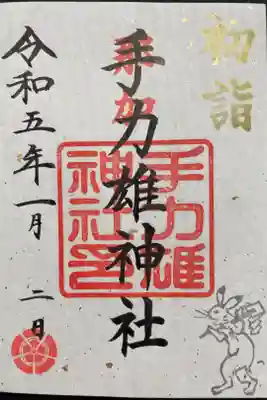 初詣
手力雄神社
手力雄
神社印
令和五年一月
二日